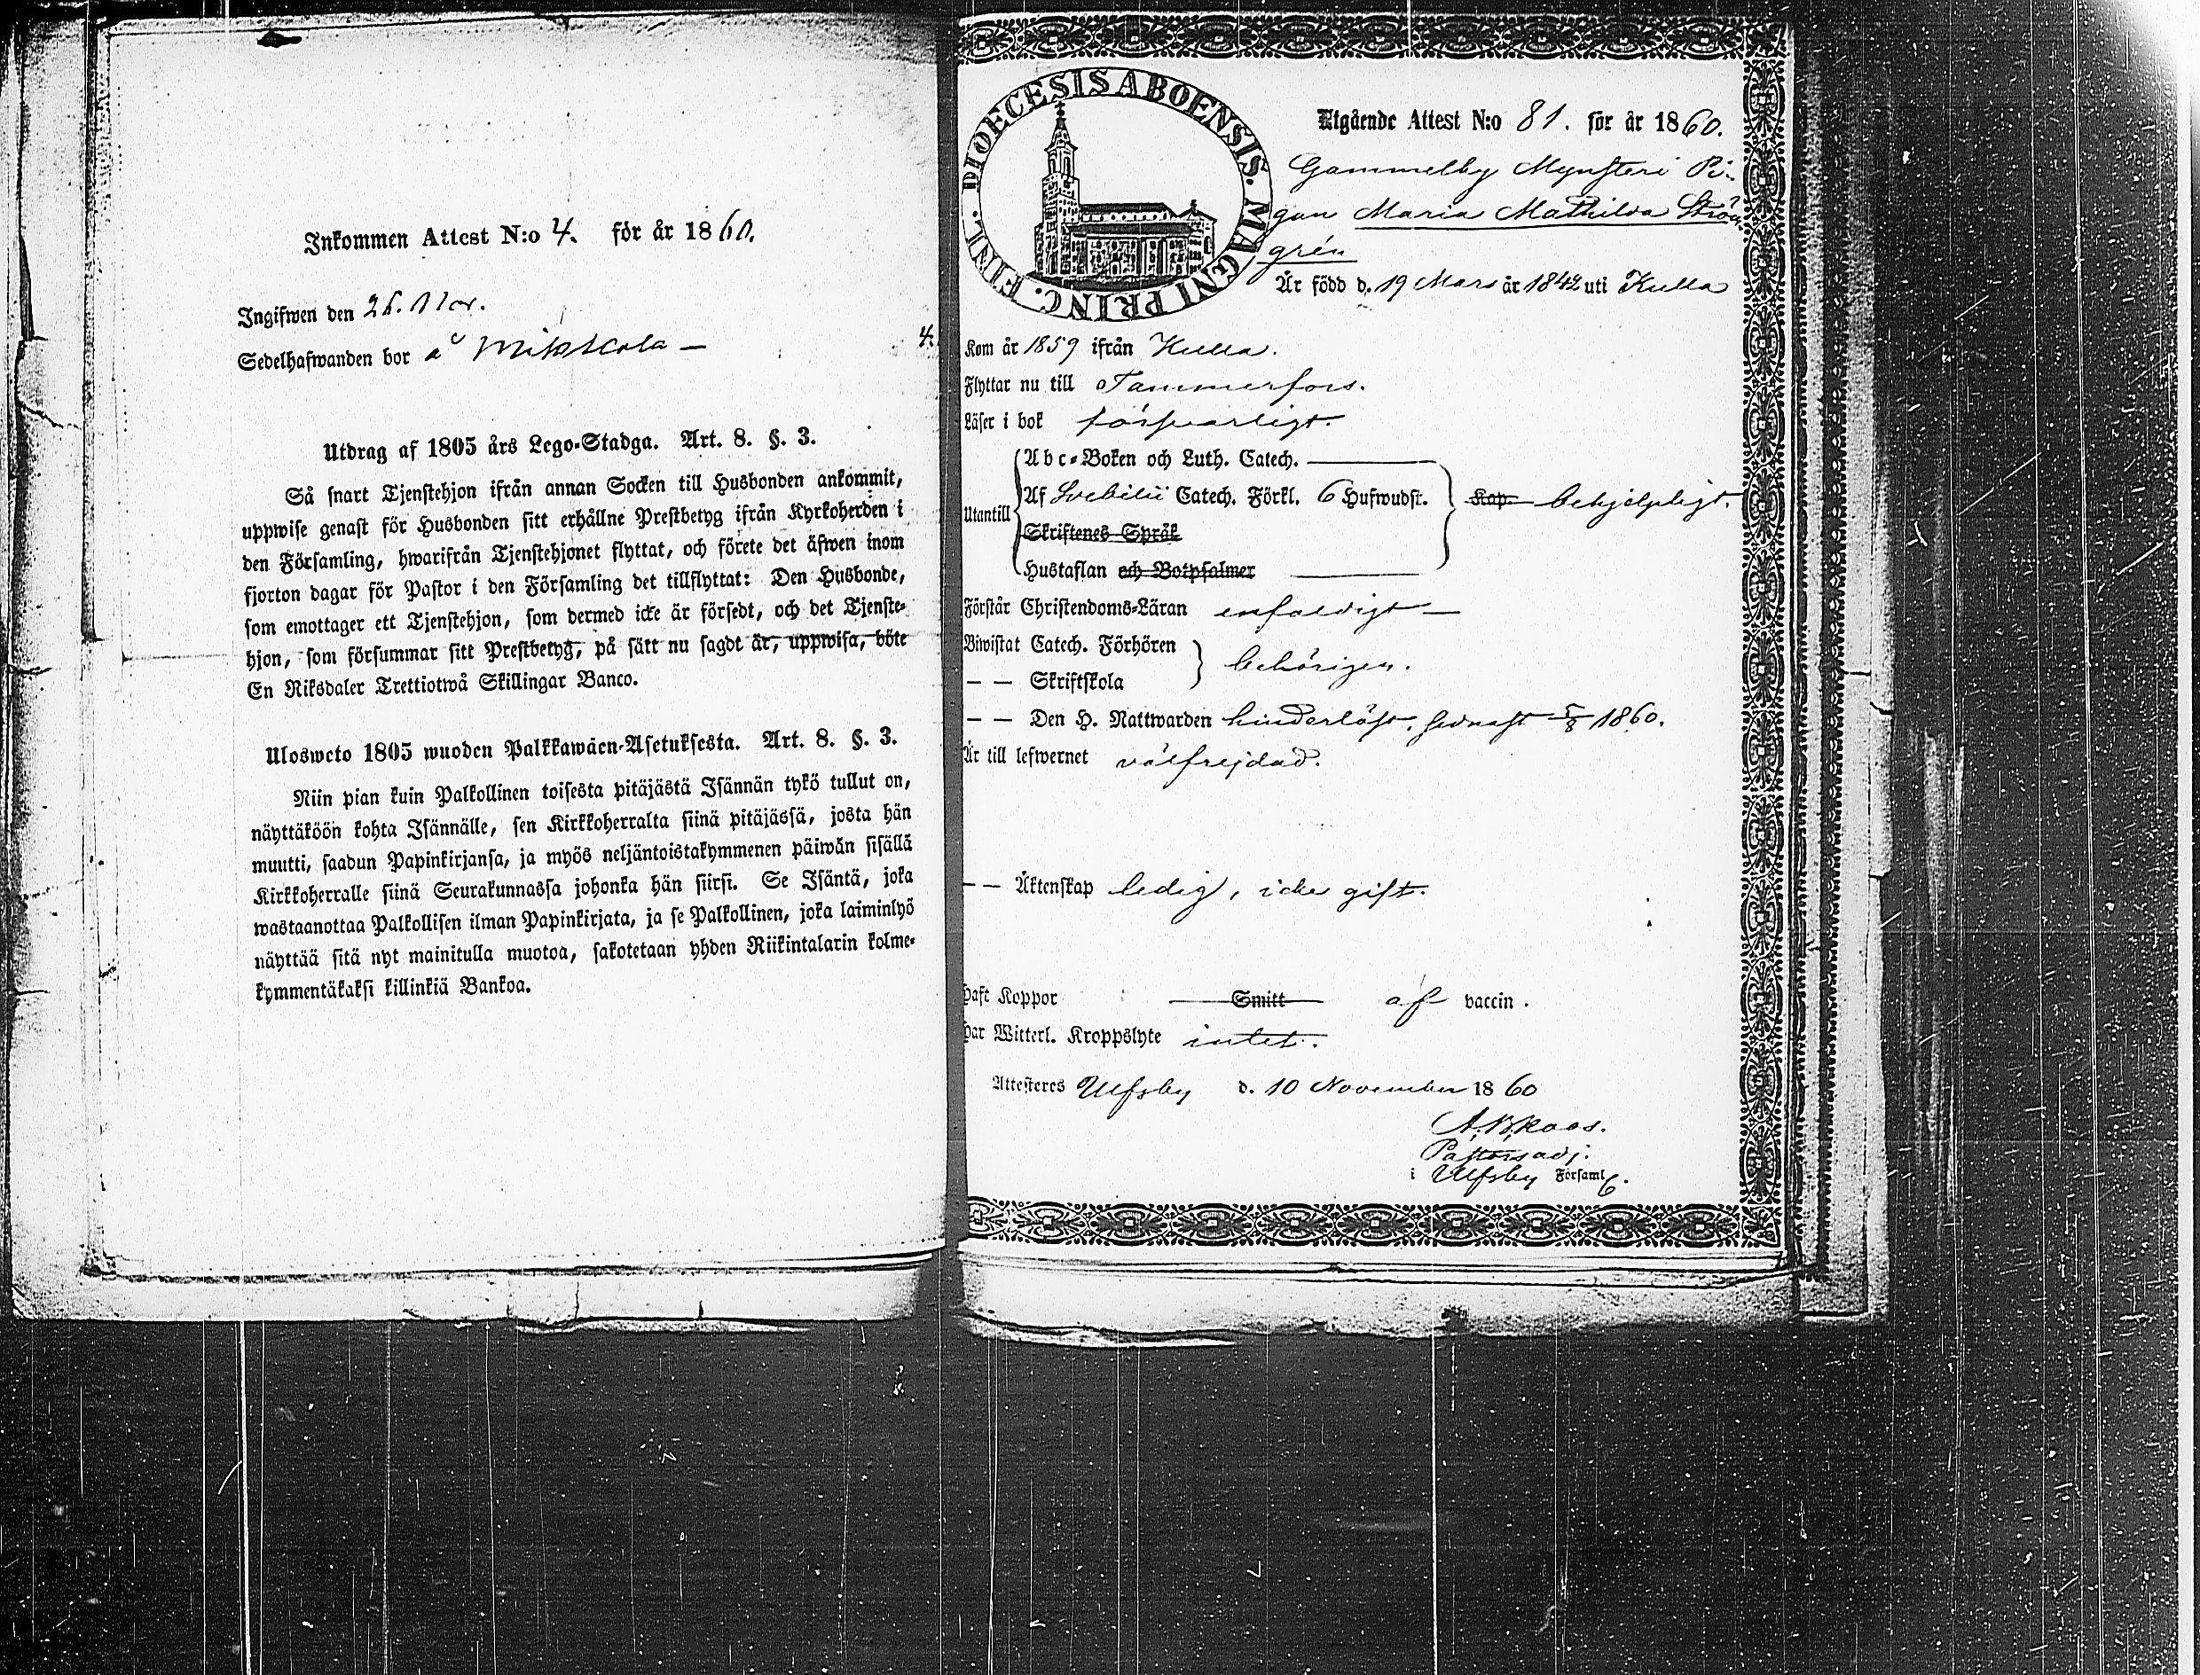 Inkommen Attest N:o 4. för år 1860.
Ingifwen den 26. Nov.
Sedelhafwanden bor å
Utdrag af 1805 års Lego-Stadga. Art. 8. §. 3.
Så snart Tjenstehjon ifrån annan Socken till Husbonden ankommit,
uppwise genast för Husbonden sitt erhållne Prestbetyg ifrån Kyrkoherden i
den Församling, hwarifrån Tjenstehjonet flyttat, och förete det äfwen inom
fjorton dagar för Pastor i den Församling det tillflyttat: Den Husbonde,
som emottager ett Tjenstehjon, som dermed icke är försedt, och det Tjenste-
hjon, som försummar sitt Prestbetyg, på sätt nu sagdt är, uppwisa, böte
En Riksdaler Trettiotwå Skillingar Banco.
Ulosweto 1805 wuoden Palkkawäen-Asetuksesta. Art. 8. §. 3.
Niin pian kuin Palkollinen toisesta pitäjästä Isännän tykö tullut on,
näyttäköön kohta Isännälle, sen Kirkkoherralta siinä pitäjässä, josta hän
muutti, saadun Papinkirjansa, ja myös neljäntoistakymmenen päiwän sisällä
Kirkkoherralle siinä Seurakunnassa johonka hän siirsi. Se Isäntä, joka
wastaanottaa Palkollisen ilman Papinkirjata, ja se Palkollinen, joka laiminlyö
näyttää sitä nyt mainitulla muotoa, sakotetaan yhden Riikintalarin kolme-
kymmentäkaksi killinkiä Bankoa.
4.
DIOECESIS ABOENSIS. MAGNI PRINC. FINL.
Utgående Attest N:o 81. för år 1860.
Gammelby Mynsteri Pi-
gan Maria Mathilda Ström
grén
Är född d. 19 Mars år 1842 uti Kulla
Kom år 1859 ifrån Kulla.
Flyttar nu till Tammerfors.
Läser i bok försvarligt.
Utantill
Abc-Boken och Luth. Catech.
Af Svebilii Catech. Förkl. 6 Hufwudst. Kap behjelpligt.
Skriftenes Språk
Hustaflan och Botpsalmer
Förstår Christendoms-Läran enfaldigt
Biwistat Catech. Förhören
— — Skriftskola behörigen.
— — Den H. Nattwarden hinderlöst, sednast 5/8 1860.
Är till lefwernet välfrejdad.
— — Äktenskap ledig, icke gift.
Haft Koppor Smitt af vaccin.
Har Witterl. Kroppslyte intet.
Attesteres Ulfsby d. 10 November 1860
Pastorsadj.
i Ulfsby Församl